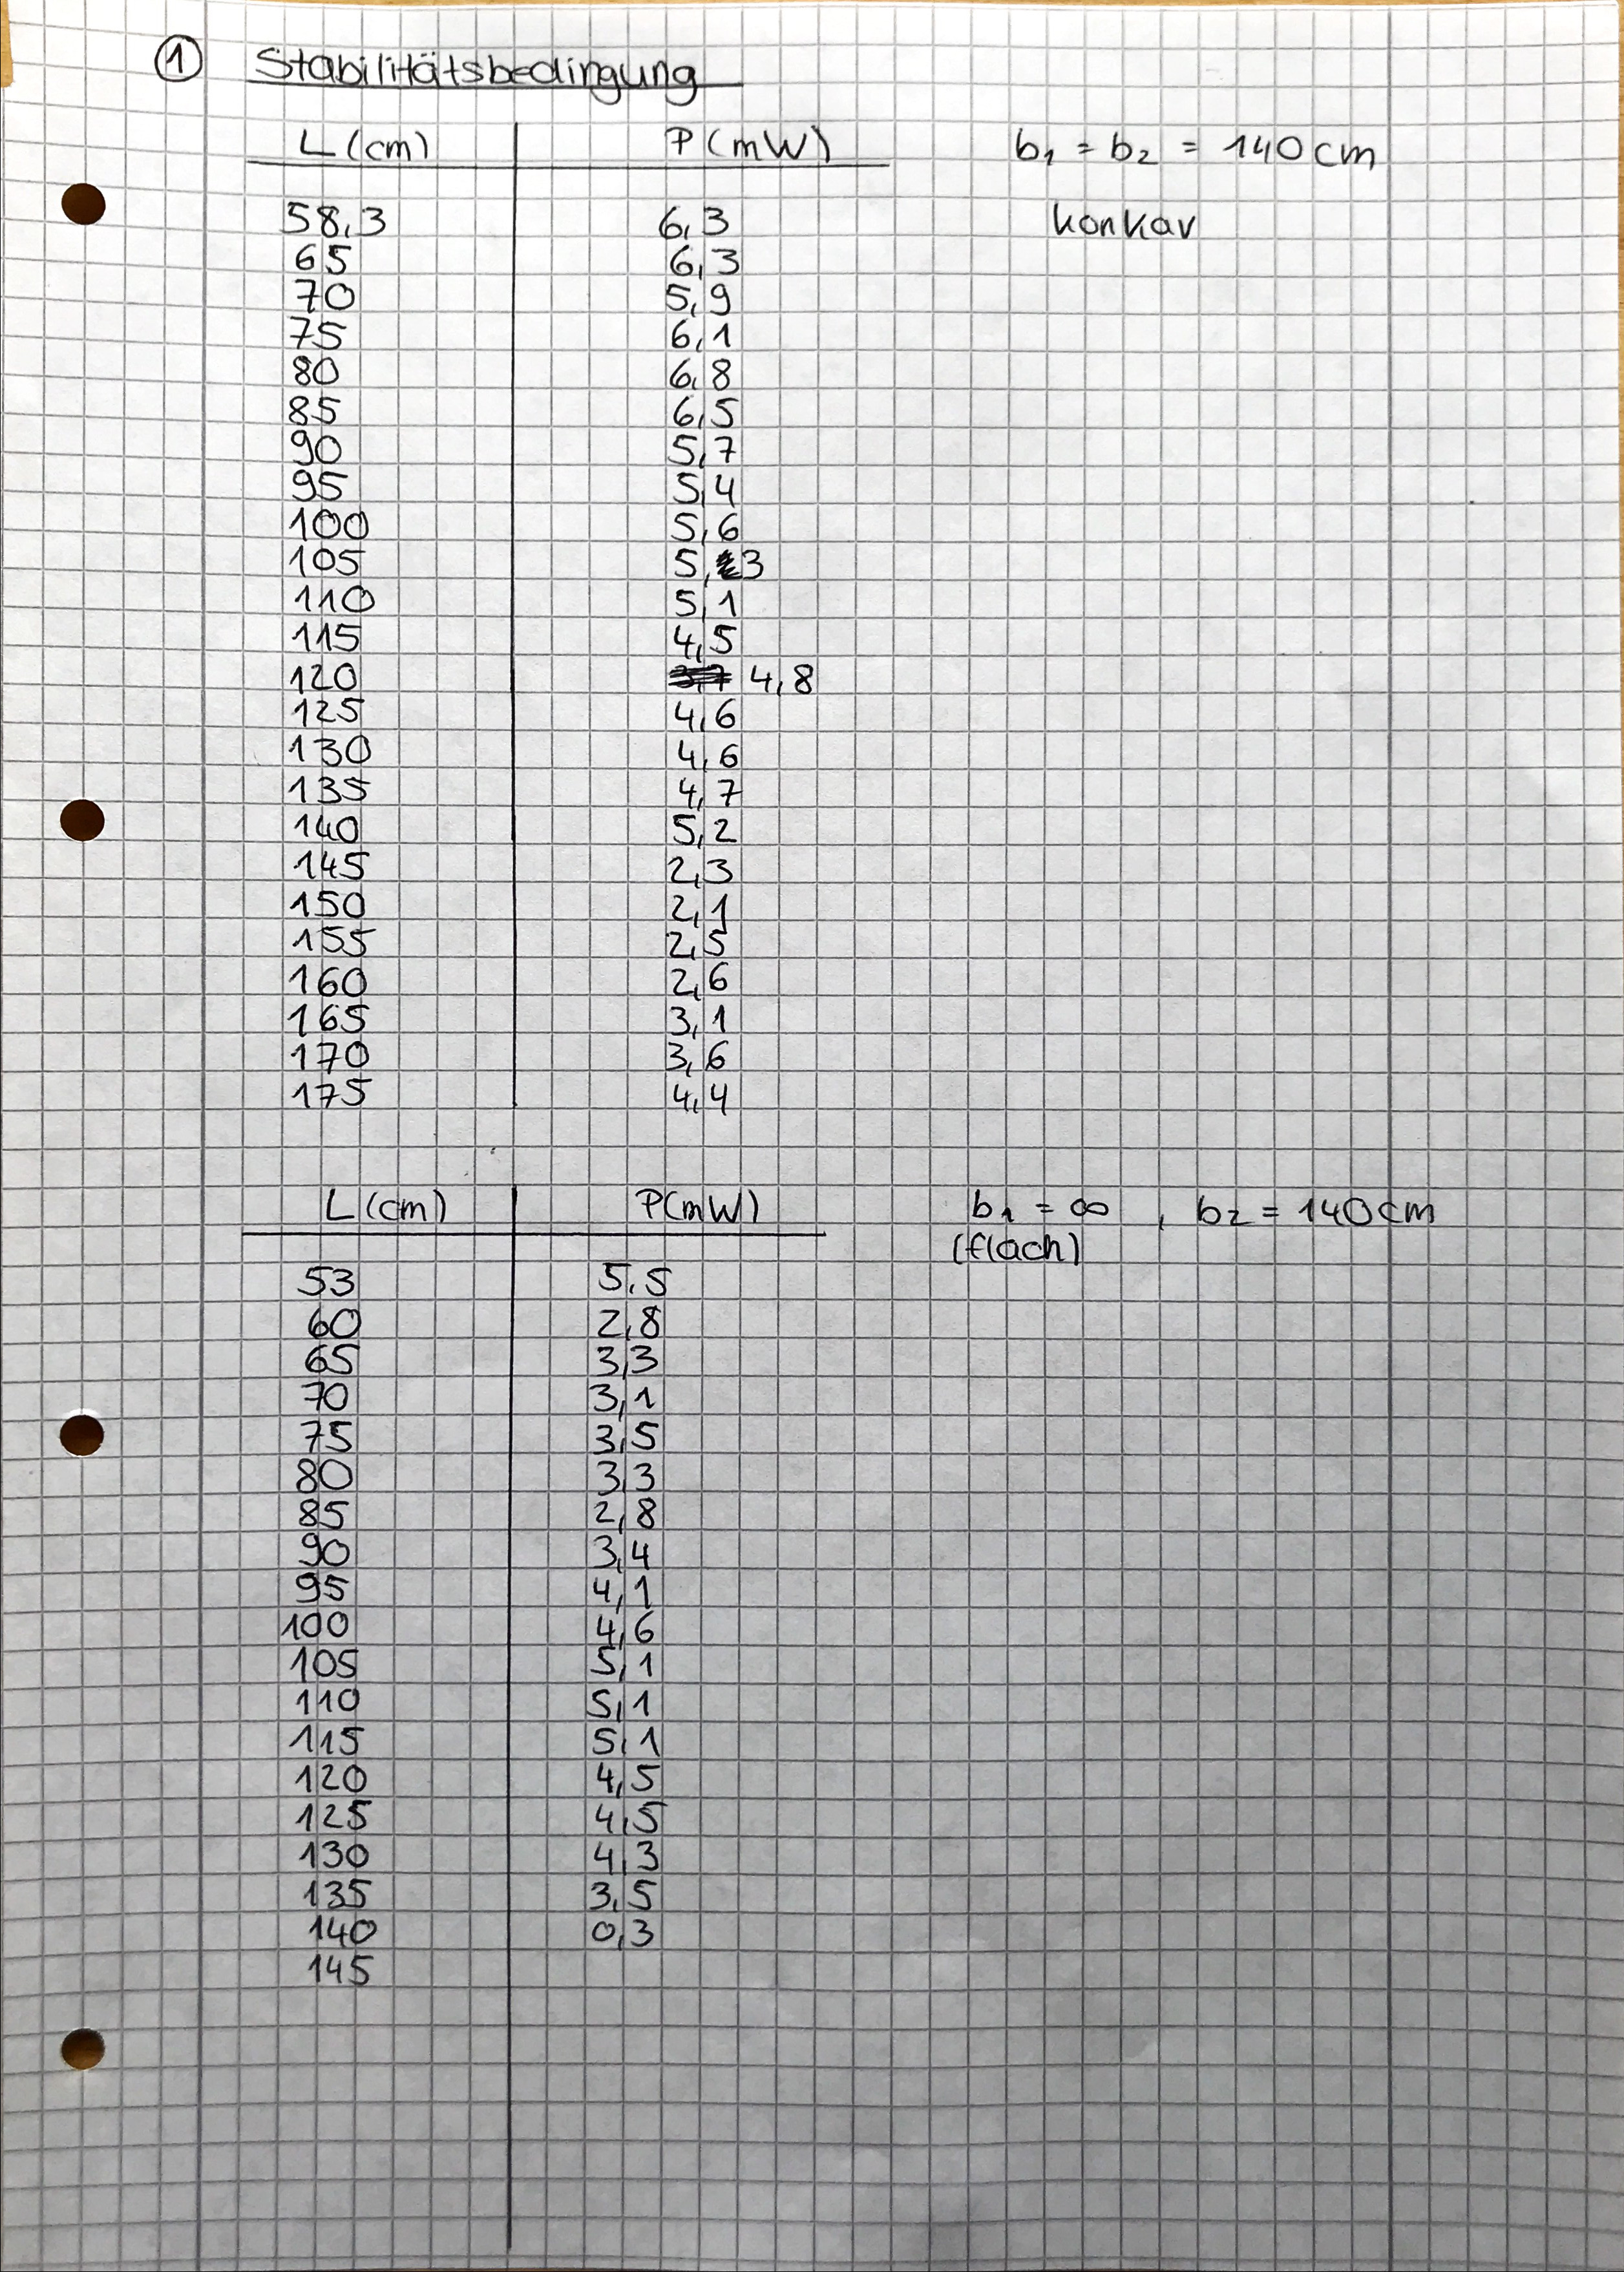 1 Stabilitätsbedingung
L (cm) P (mW) b₁ = b₂ = 140 cm
58,3 6,3 konkav
65 6,3
70 5,9
75 6,1
80 6,8
85 6,5
90 5,7
95 5,4
100 5,6
105 5,3
110 5,1
115 4,5
120 4,8
125 4,6
130 4,6
135 4,7
140 5,2
145 2,3
150 2,1
155 2,5
160 2,6
165 3,1
170 3,6
175 4,4
L (cm) P(mW) b₁ = ∞ , b₂ = 140 cm
(flach)
53 5,5
60 2,8
65 3,3
70 3,1
75 3,5
80 3,3
85 2,8
90 3,4
95 4,1
100 4,6
105 5,1
110 5,1
115 5,1
120 4,5
125 4,5
130 4,3
135 3,5
140 0,3
145